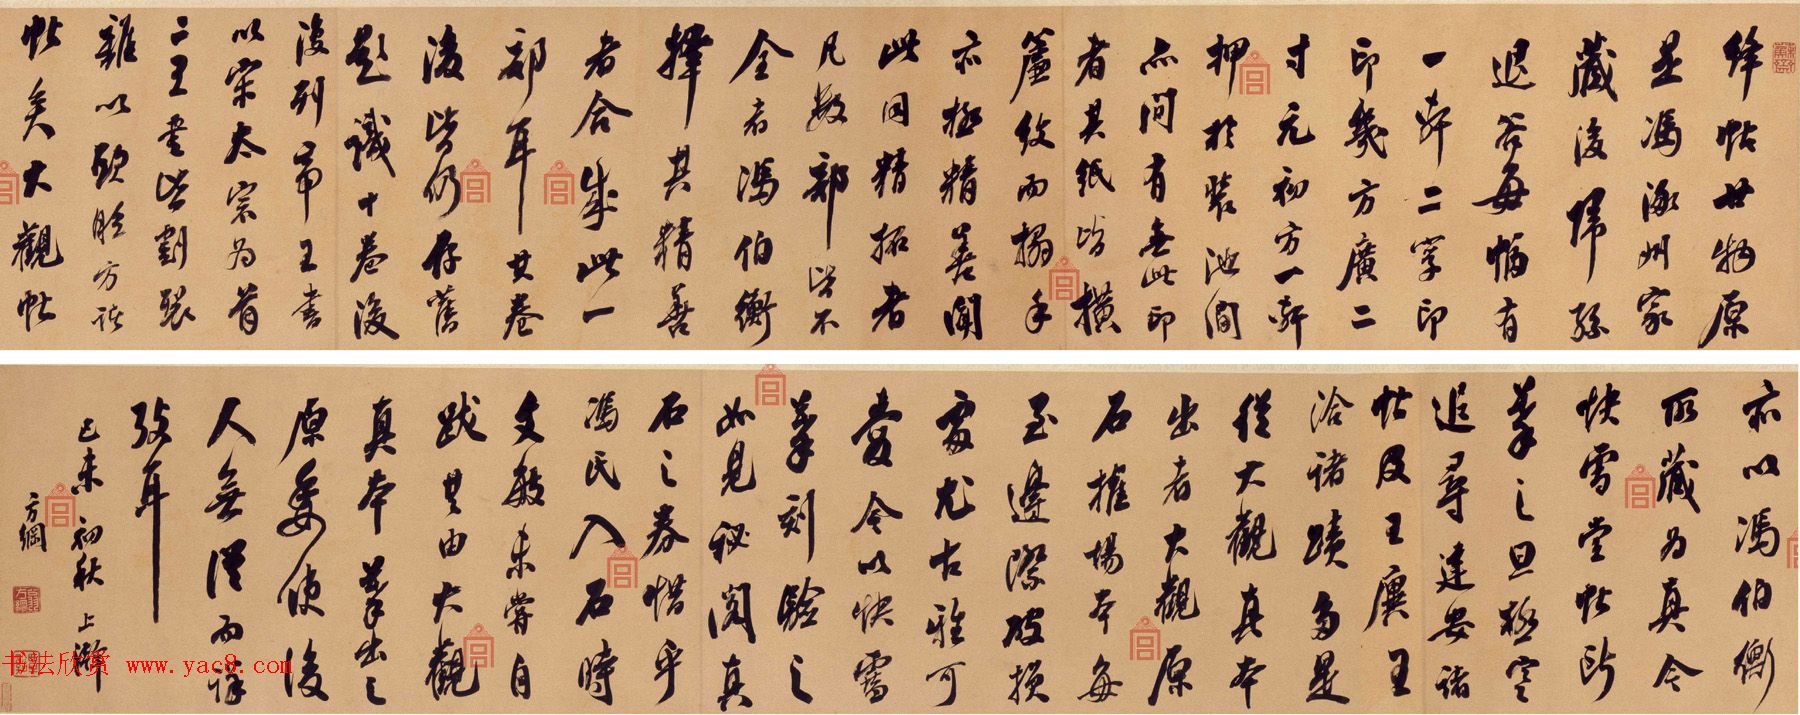 絳帖世物原
是馮涿州家
藏後歸孫
退谷每幅有
一軒二字印
印幾方廣二
寸元初方一軒
押於裝池間
亦間有無此印
者其紙皆橫
簾紋而搨手
亦極精善聞
此同精拓者
凡數部皆不
全者馮伯衡
擇其精善
者合成此一
部耳其卷
後皆仍存舊
題識十卷後
後列帝王書
以宋太宗為首
二王書皆割裂
雖以
帖矣大觀帖
亦以馮伯衡
所藏為真今
快雪堂帖所
摹之旦極寒
追尋建安諸
帖及王廙王
洽諸蹟多是
從大觀真本
出者大觀原
石搉場本每
至邊際破損
處尤古雅可
愛今以快雪
摹刻驗之
如見秘閣真
石之券惜乎
馮氏入石時
文敏未嘗自
跋其由大觀
真本摹出之
原委使後
人無從而詳
攷耳
己未初秋上澣
方綱
书法欣赏 www.yac8.com